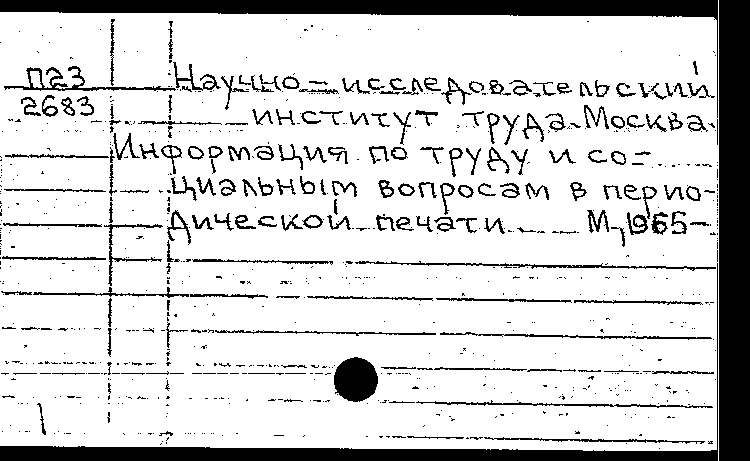 П23
2683
Научно-исследовательский
институт труда. Москва.
Информация по труду и со-
циальным вопросам в перио-
дической печати. М, 1965-